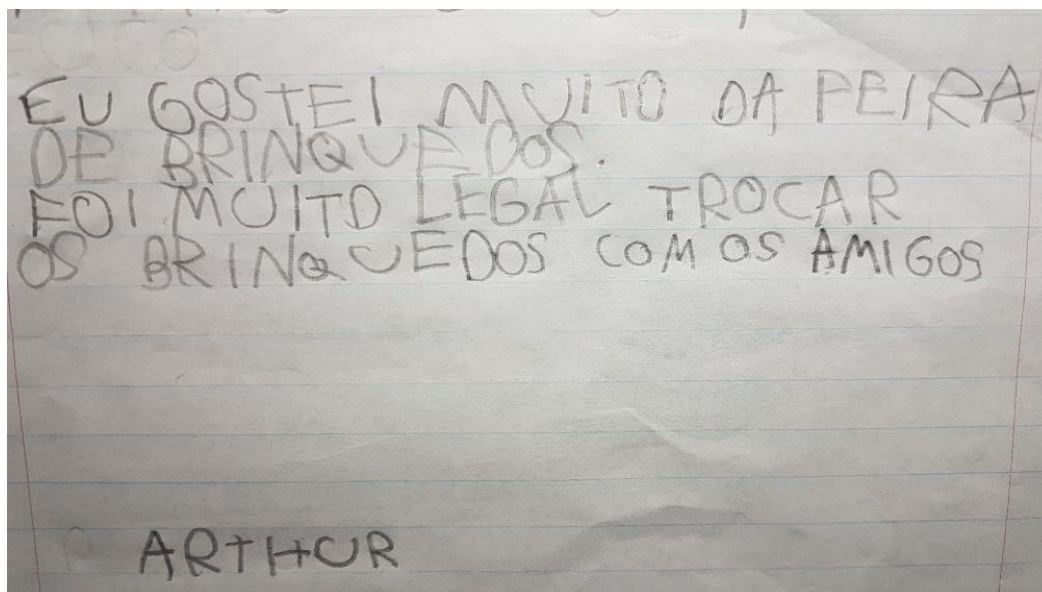 EU GOSTEI MUITO DA FEIRA
DE BRINQUEDOS.
FOI MUITO LEGAL TROCAR
OS BRINQUEDOS COM OS AMIGOS
ARTHUR